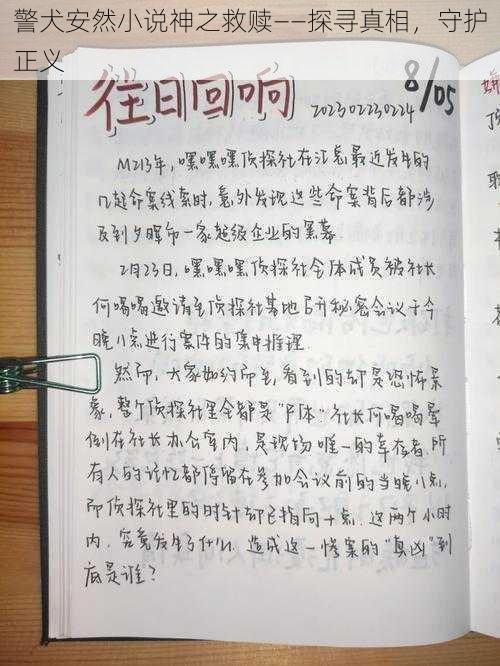 警犬安然小说神之救赎——探寻真相，守护
正义
往日回响
8/05
202302230224
M213年，嘿嘿嘿侦探社在汇总最近发生的
几起命案线索时，意外发现这些命案背后都涉
及到夕晖市一家超级企业的黑幕
2月23日，嘿嘿嘿侦探社全体成员被社长
何喝喝邀请至侦探社基地召开秘密会议于今
晚八点进行案件的集中推理.
然而，大家如约而至，看到的却是恐怖景
象，整个侦探社里全都是“尸体”社长何喝喝晕
倒在社长办公室内，是现场唯一的幸存者.所
有人的记忆都停留在参加会议前的当晚八点,
而侦探社里的时针却已指向十点.这两个小时
内.究竟发生了什么.造成这一惨案的“真凶”到
底是谁？